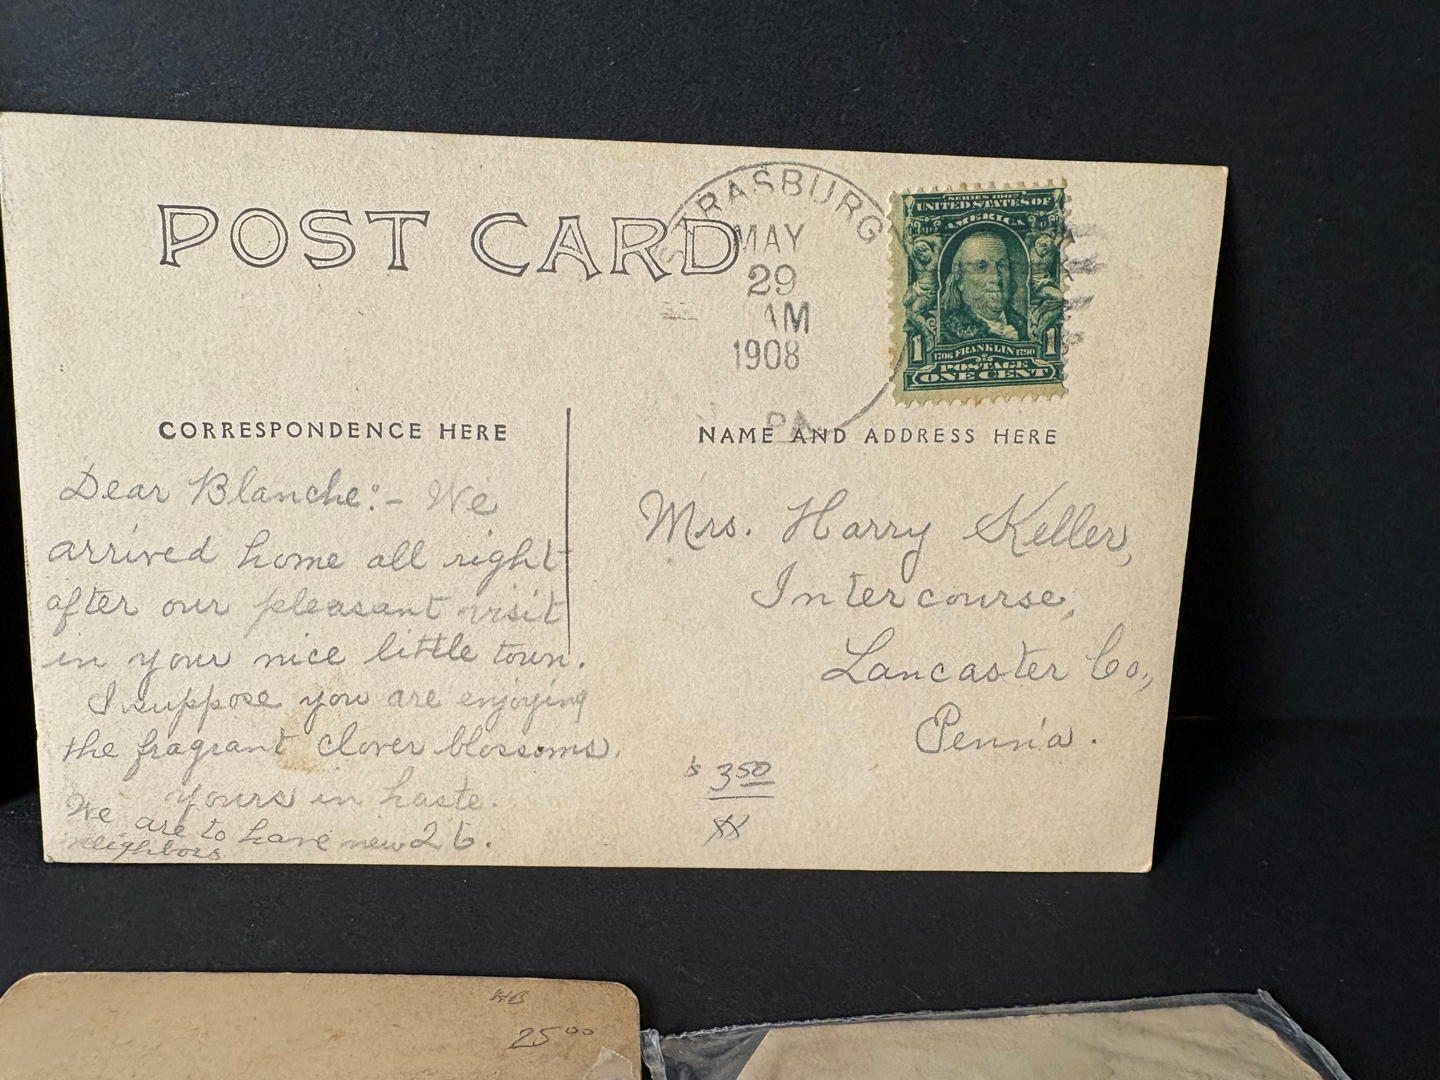 POST CARD
STRASBURG
MAY
29
AM
1908
PA.
SERIES 1902
UNITED STATES OF
AMERICA
1 1706 FRANKLIN 1790 1
POSTAGE
ONE CENT
CORRESPONDENCE HERE
NAME AND ADDRESS HERE
Dear Blanche:- We
arrived home all right
after our pleasant visit
in your nice little town.
I suppose you are enjoying
the fragrant clover blossoms.
yours in haste.
We are to have new
neighbors
Mrs. Harry Keller,
Intercourse,
Lancaster Co.,
Penn'a.
$3.50
XX
HB
25.00